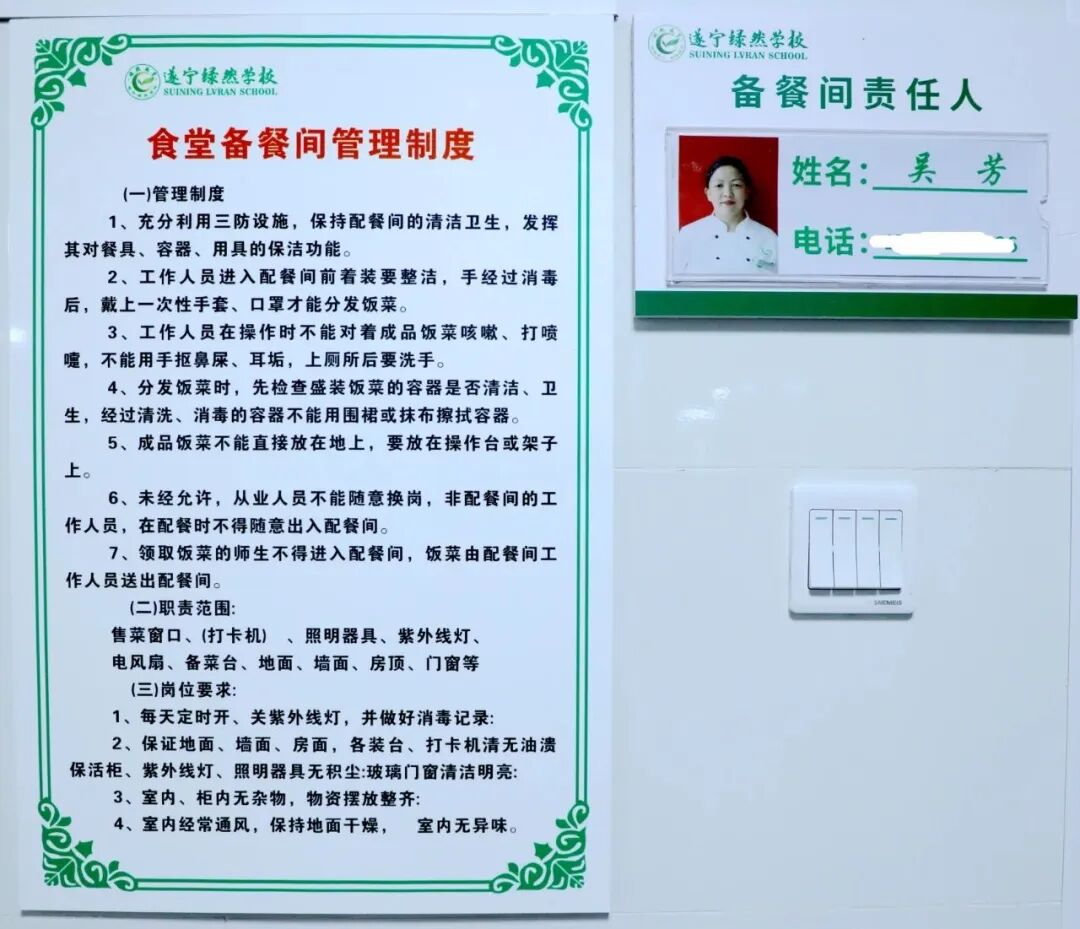 遂宁绿然学校
SUINING LVRAN SCHOOL
食堂备餐间管理制度
(一)管理制度
1、充分利用三防设施，保持配餐间的清洁卫生，发挥
其对餐具、容器、用具的保洁功能。
2、工作人员进入配餐间前着装要整洁，手经过消毒
后，戴上一次性手套、口罩才能分发饭菜。
3、工作人员在操作时不能对着成品饭菜咳嗽、打喷
嚏，不能用手抠鼻屎、耳垢，上厕所后要洗手。
4、分发饭菜时，先检查盛装饭菜的容器是否清洁、卫
生，经过清洗、消毒的容器不能用围裙或抹布擦拭容器。
5、成品饭菜不能直接放在地上，要放在操作台或架子
上。
6、未经允许，从业人员不能随意换岗，非配餐间的工
作人员，在配餐时不得随意出入配餐间。
7、领取饭菜的师生不得进入配餐间，饭菜由配餐间工
作人员送出配餐间。
(二)职责范围:
售菜窗口、(打卡机) 、照明器具、紫外线灯、
电风扇、备菜台、地面、墙面、房顶、门窗等
(三)岗位要求:
1、每天定时开、关紫外线灯，并做好消毒记录:
2、保证地面、墙面、房面，各装台、打卡机清无油渍
保活柜、紫外线灯、照明器具无积尘:玻璃门窗清洁明亮:
3、室内、柜内无杂物，物资摆放整齐:
4、室内经常通风，保持地面干燥， 室内无异味。
遂宁绿然学校
SUINING LVRAN SCHOOL
备餐间责任人
姓名：吴 芳
电话：
SIEMEIS